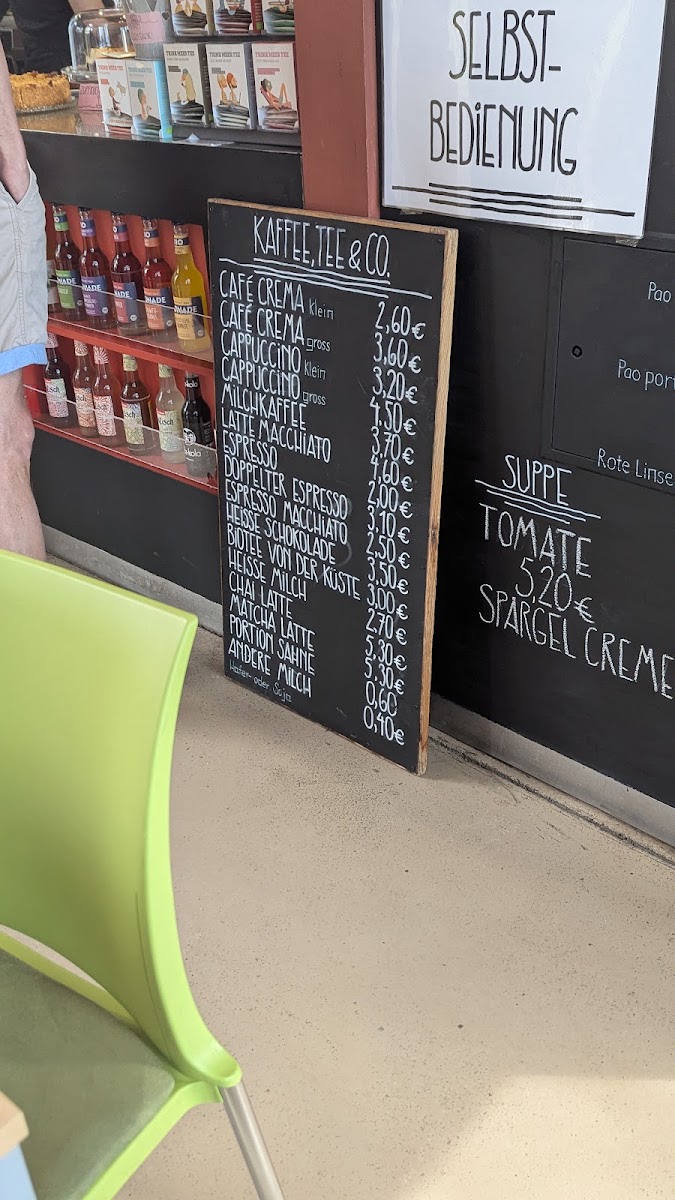 SELBST-
BEDIENUNG
TRINK MEER TEE
TRINK MEER TEE
TRINK MEER TEE
KAFFEE, TEE & CO.
CAFÉ CREMA klein 2,60€
CAFÉ CREMA gross 3,60€
CAPPUCCINO klein 3,20€
CAPPUCCINO gross 4,50€
MILCHKAFFEE 3,70€
LATTE MACCHIATO 4,60€
ESPRESSO 2,00€
DOPPELTER ESPRESSO 3,10€
ESPRESSO MACCHIATO 2,50€
HEISSE SCHOKOLADE 3,50€
BIOTEE VON DER KÜSTE 3,00€
HEISSE MILCH 2,70€
CHAI LATTE 5,30€
MATCHA LATTE 5,30€
PORTION SAHNE 0,60
ANDERE MILCH 0,40€
Hafer- oder Soja
Pao
Pao port
Rote Linse
SUPPE
TOMATE
5,20€
SPARGEL CREME